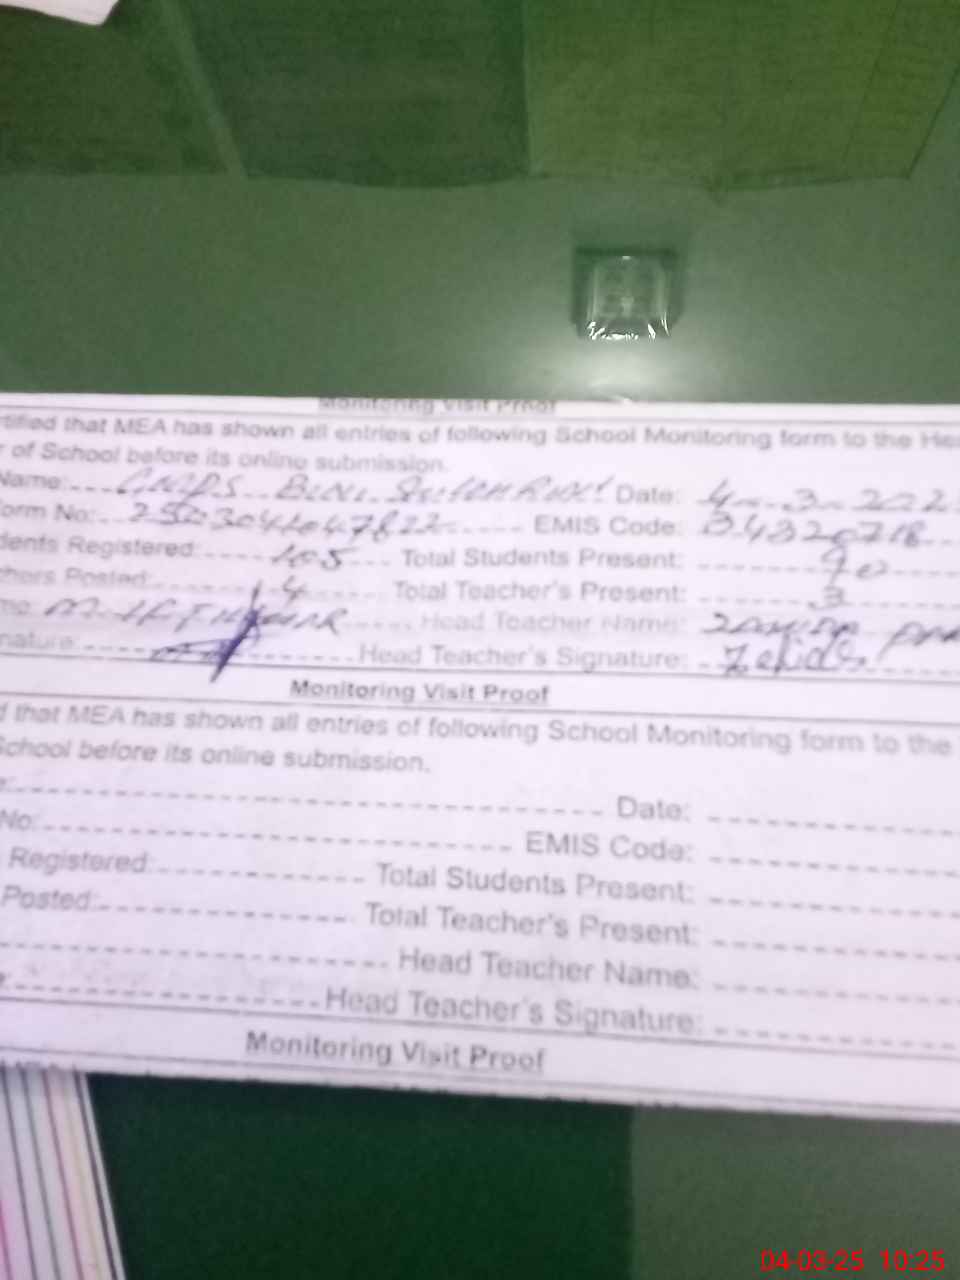 Monitoring Visit Proof
rtified that MEA has shown all entries of following School Monitoring form to the Hea
r of School before its online submission.
Name: Date: 4-3-202
orm No: EMIS Code: 34320718
dents Registered: 105 Total Students Present: 90
chers Posted: 4 Total Teacher's Present: 3
me: Head Teacher Name:
nature: Head Teacher's Signature:
Monitoring Visit Proof
d that MEA has shown all entries of following School Monitoring form to the
School before its online submission.
Date:
No: EMIS Code:
Registered: Total Students Present:
Posted: Total Teacher's Present:
Head Teacher Name:
Head Teacher's Signature:
Monitoring Visit Proof
04-03-25 10:25